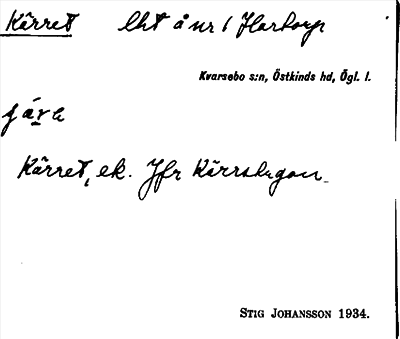 Kärret lht å nr 1 Hartorp
Kvarsebo s:n, Östkinds hd, Ögl. l.
Kärret, ek. Jfr Kärrstugan
STIG JOHANSSON 1934.